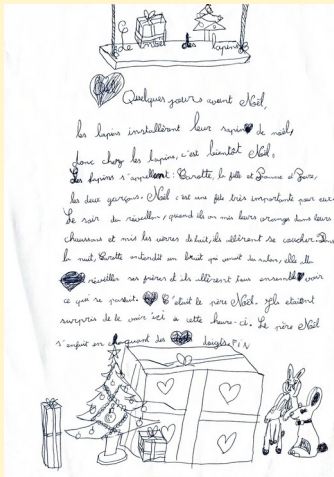 Le Noël des lapins
Quelques jours avant Noël,
les lapins installèrent leur sapin de noël,
donc chez les lapins, c'est bientôt Noël.
Les lapins s'appellent : Carotte, la fille et Pomme et Poire,
les deux garçons. Noël c'est une fête très importante pour eux.
Le soir du réveillon, quand ils on mis leurs oranges dans leurs
chaussons et mis les verres de lait, ils allèrent se coucher. Dans
la nuit, Carotte entendit un bruit qui venait du salon, elle alla
réveiller ses frères et ils allèrent tous ensemble voir
ce qui se passait. C'était le père Noël. Ils étaient
surpris de le voir ici a cette heure-ci. Le père Noël
s'enfuit en claquant des doigts. FIN